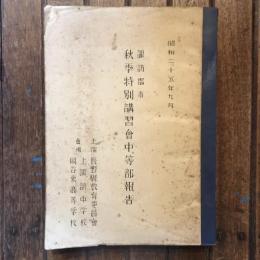 昭和二十五年九月
諏訪郡市
秋季特別講習會中等部報告
主催 長野縣教育委員會
會場 上諏訪中学校
岡谷東高等学校